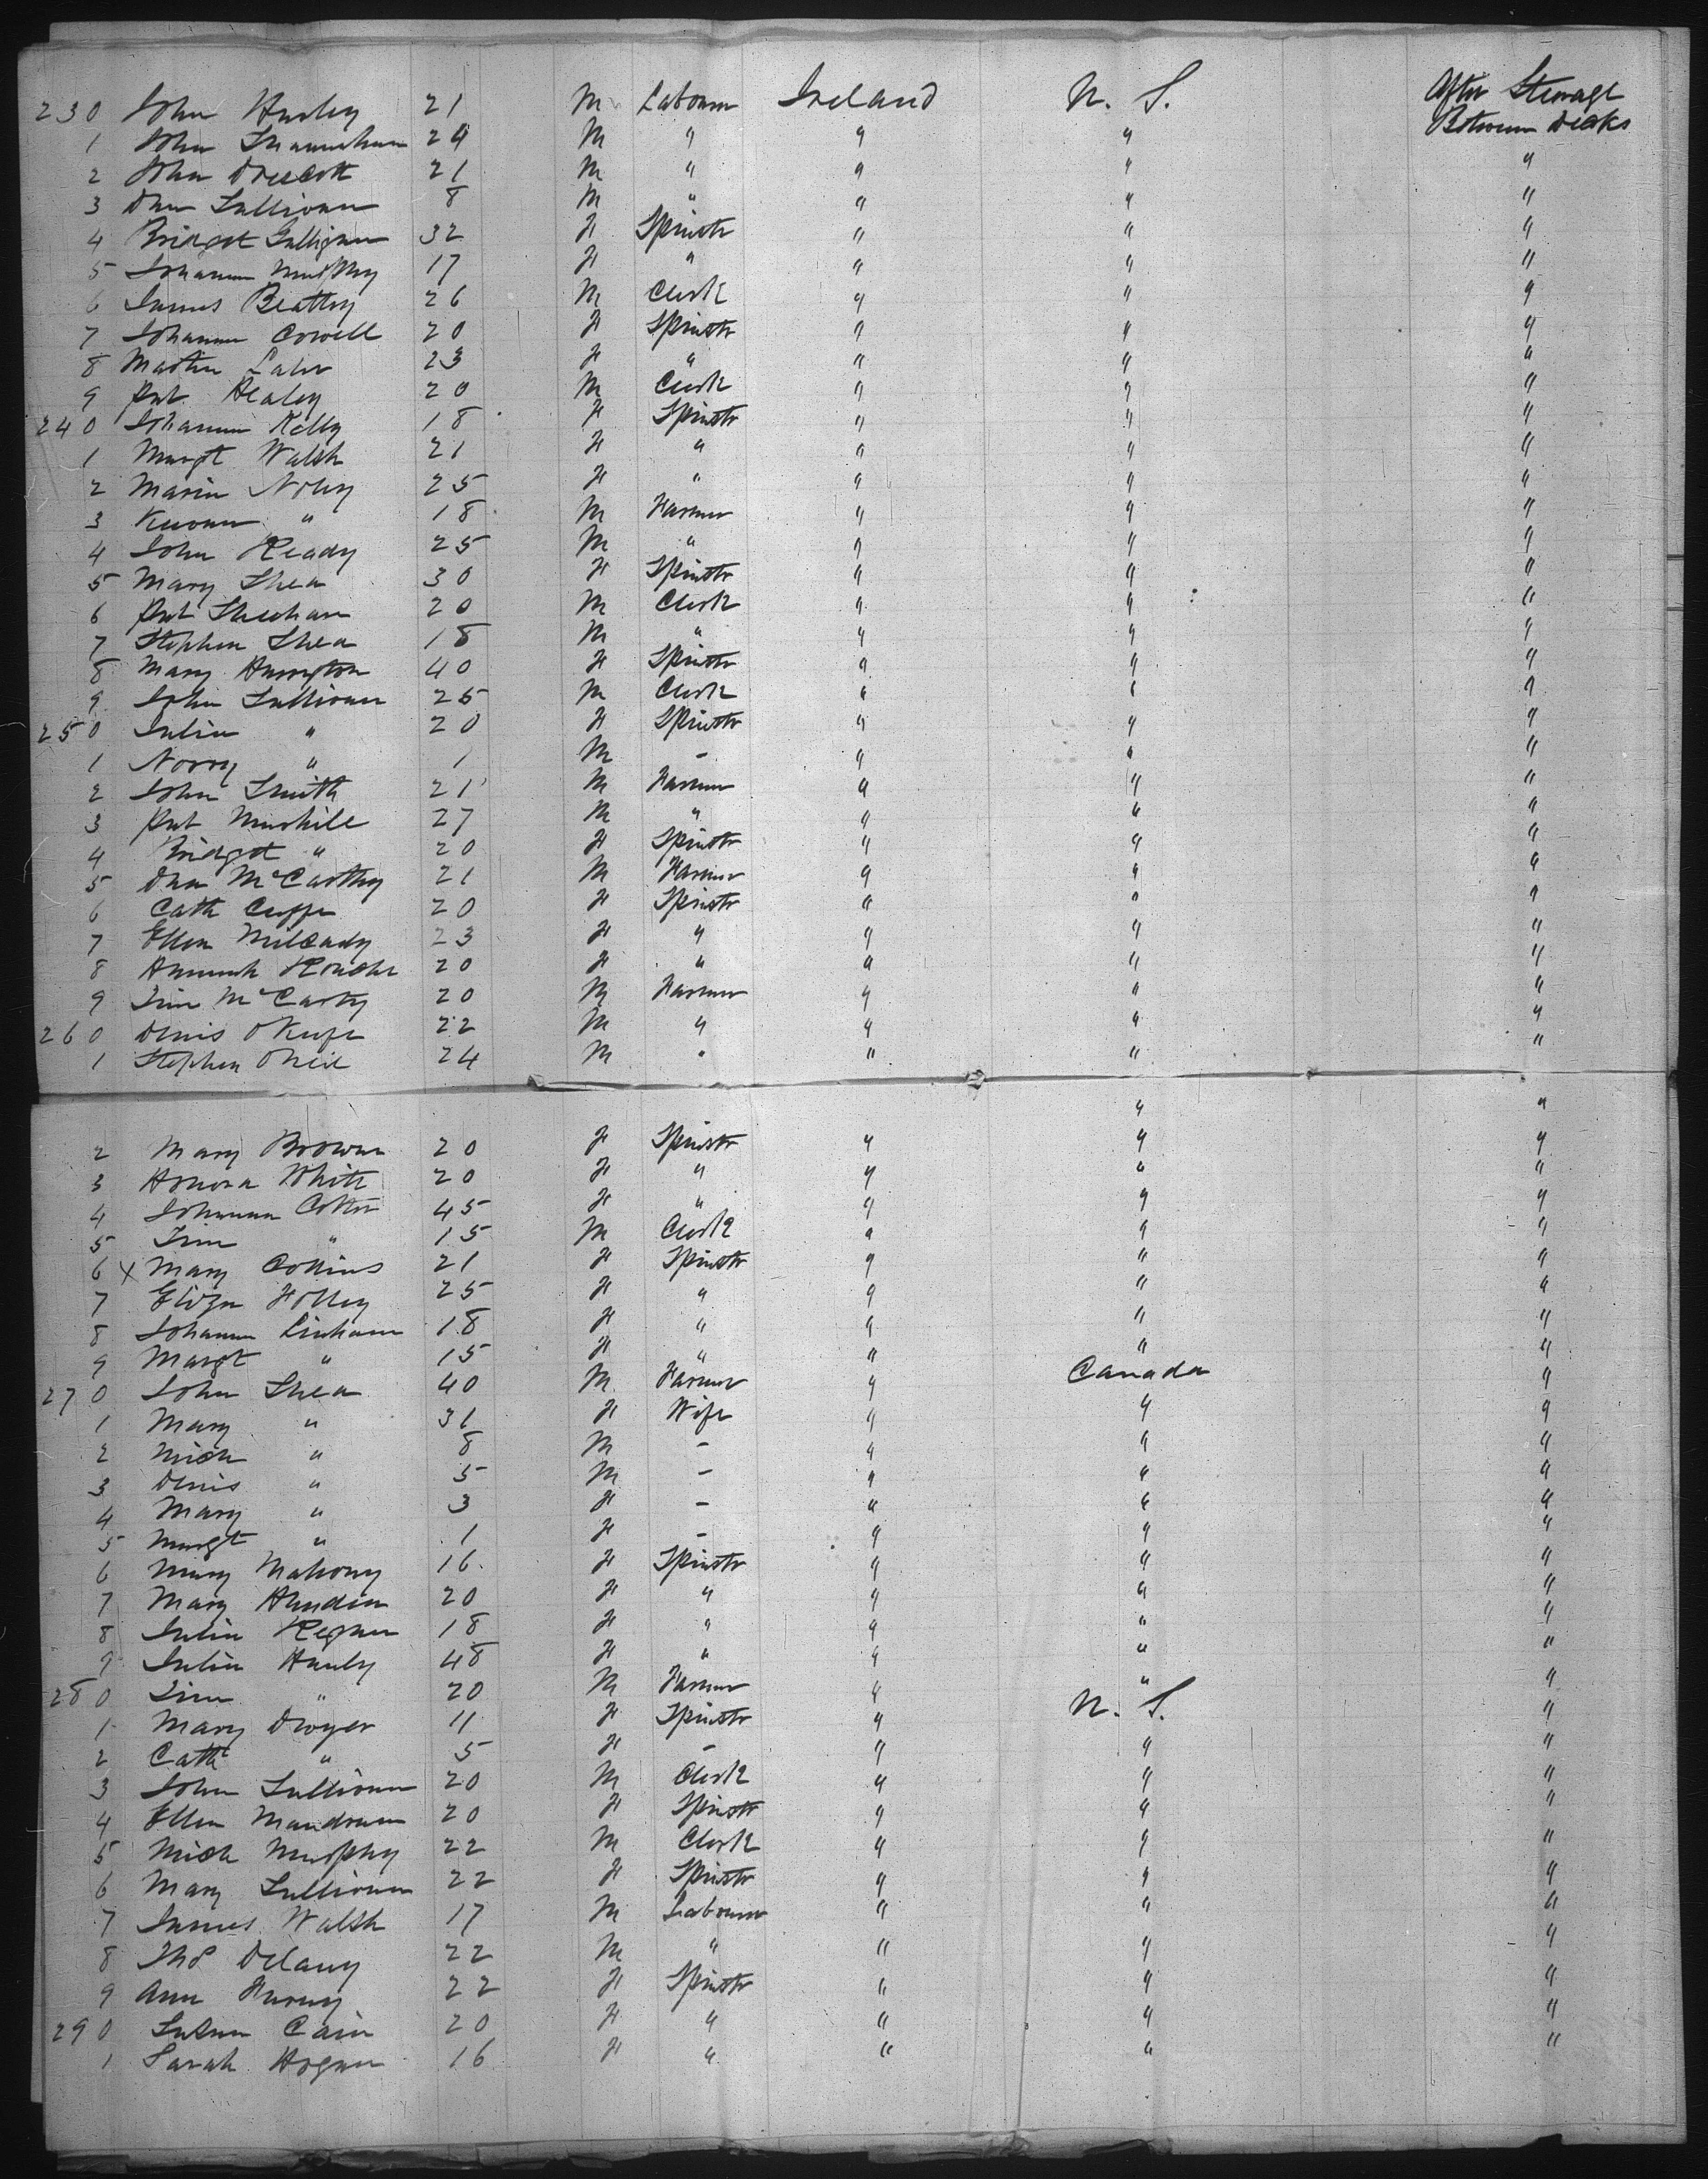 230 John Hurley 21 M Labourer Ireland U. S. After Steerage
1 John 24 M " " " Between Decks
2 John 21 M " " " "
3 Dan Sullivan 8 M " " " "
4 Bridget 32 F Spinstr " " "
5 Johanna Murphy 17 F " " " "
6 James Beatty 26 M Clerk " " "
7 Johanna Cowell 20 F Spinstr " " "
8 Martin 23 F " " " "
9 Pat Healey 20 M Clerk " " "
240 Johanna Kelly 18 F Spinstr " " "
1 Margt Walsh 21 F " " " "
2 Maria 25 F " " " "
3 " 18 M Farmer " " "
4 John Ready 25 M " " " "
5 Mary Shea 30 F Spinstr " " "
6 Pat Sheehan 20 M Clerk " " "
7 Stephen Shea 18 M " " " "
8 Mary 40 F Spinstr " " "
9 John Sullivan 25 M Clerk " " "
250 Julia " 20 F Spinstr " " "
1 Norry " 1 M - " " "
2 John Smith 21 M Farmer " " "
3 Pat 27 M " " " "
4 Bridget " 20 F Spinstr " " "
5 Dan McCarthy 21 M Farmer " " "
6 Cath Cuffe 20 F Spinstr " " "
7 Ellen 23 F " " " "
8 Hannah Roache 20 F " " " "
9 Tim McCarty 20 M Farmer " " "
260 Denis OKeefe 22 M " " " "
1 Stephen ONeil 24 M " " " "
" "
2 Mary Brown 20 F Spinstr " " "
3 Honora White 20 F " " " "
4 Johanna Cotter 45 F " " " "
5 Tim " 15 M Clerk " " "
6 x Mary Collins 21 F Spinstr " " "
7 Eliza 25 F " " " "
8 Johanna Linhane 18 F " " " "
9 Margt " 15 F " " " "
270 John Shea 40 M Farmer " Canada "
1 Mary " 31 F Wife " " "
2 Mich " 8 M - " " "
3 Denis " 5 M - " " "
4 Mary " 3 F - " " "
5 Margt " 1 F - " " "
6 Mary Mahony 16 F Spinstr " " "
7 Mary 20 F " " " "
8 Julia Regan 18 F " " " "
9 Julia Hanly 48 F " " " "
280 Tim " 20 M Farmer " " "
1 Mary Dwyer 11 F Spinstr " U. S. "
2 Cath " 5 F - " " "
3 John Sullivan 20 M Clerk " " "
4 Ellen 20 F Spinstr " " "
5 Mich Murphy 22 M Clerk " " "
6 Mary Sullivan 22 F Spinstr " " "
7 James Walsh 17 M Labourer " " "
8 Thos Delany 22 M " " " "
9 Ann 22 F Spinstr " " "
290 Susan Cain 20 F " " " "
1 Sarah Hogan 16 F " " " "